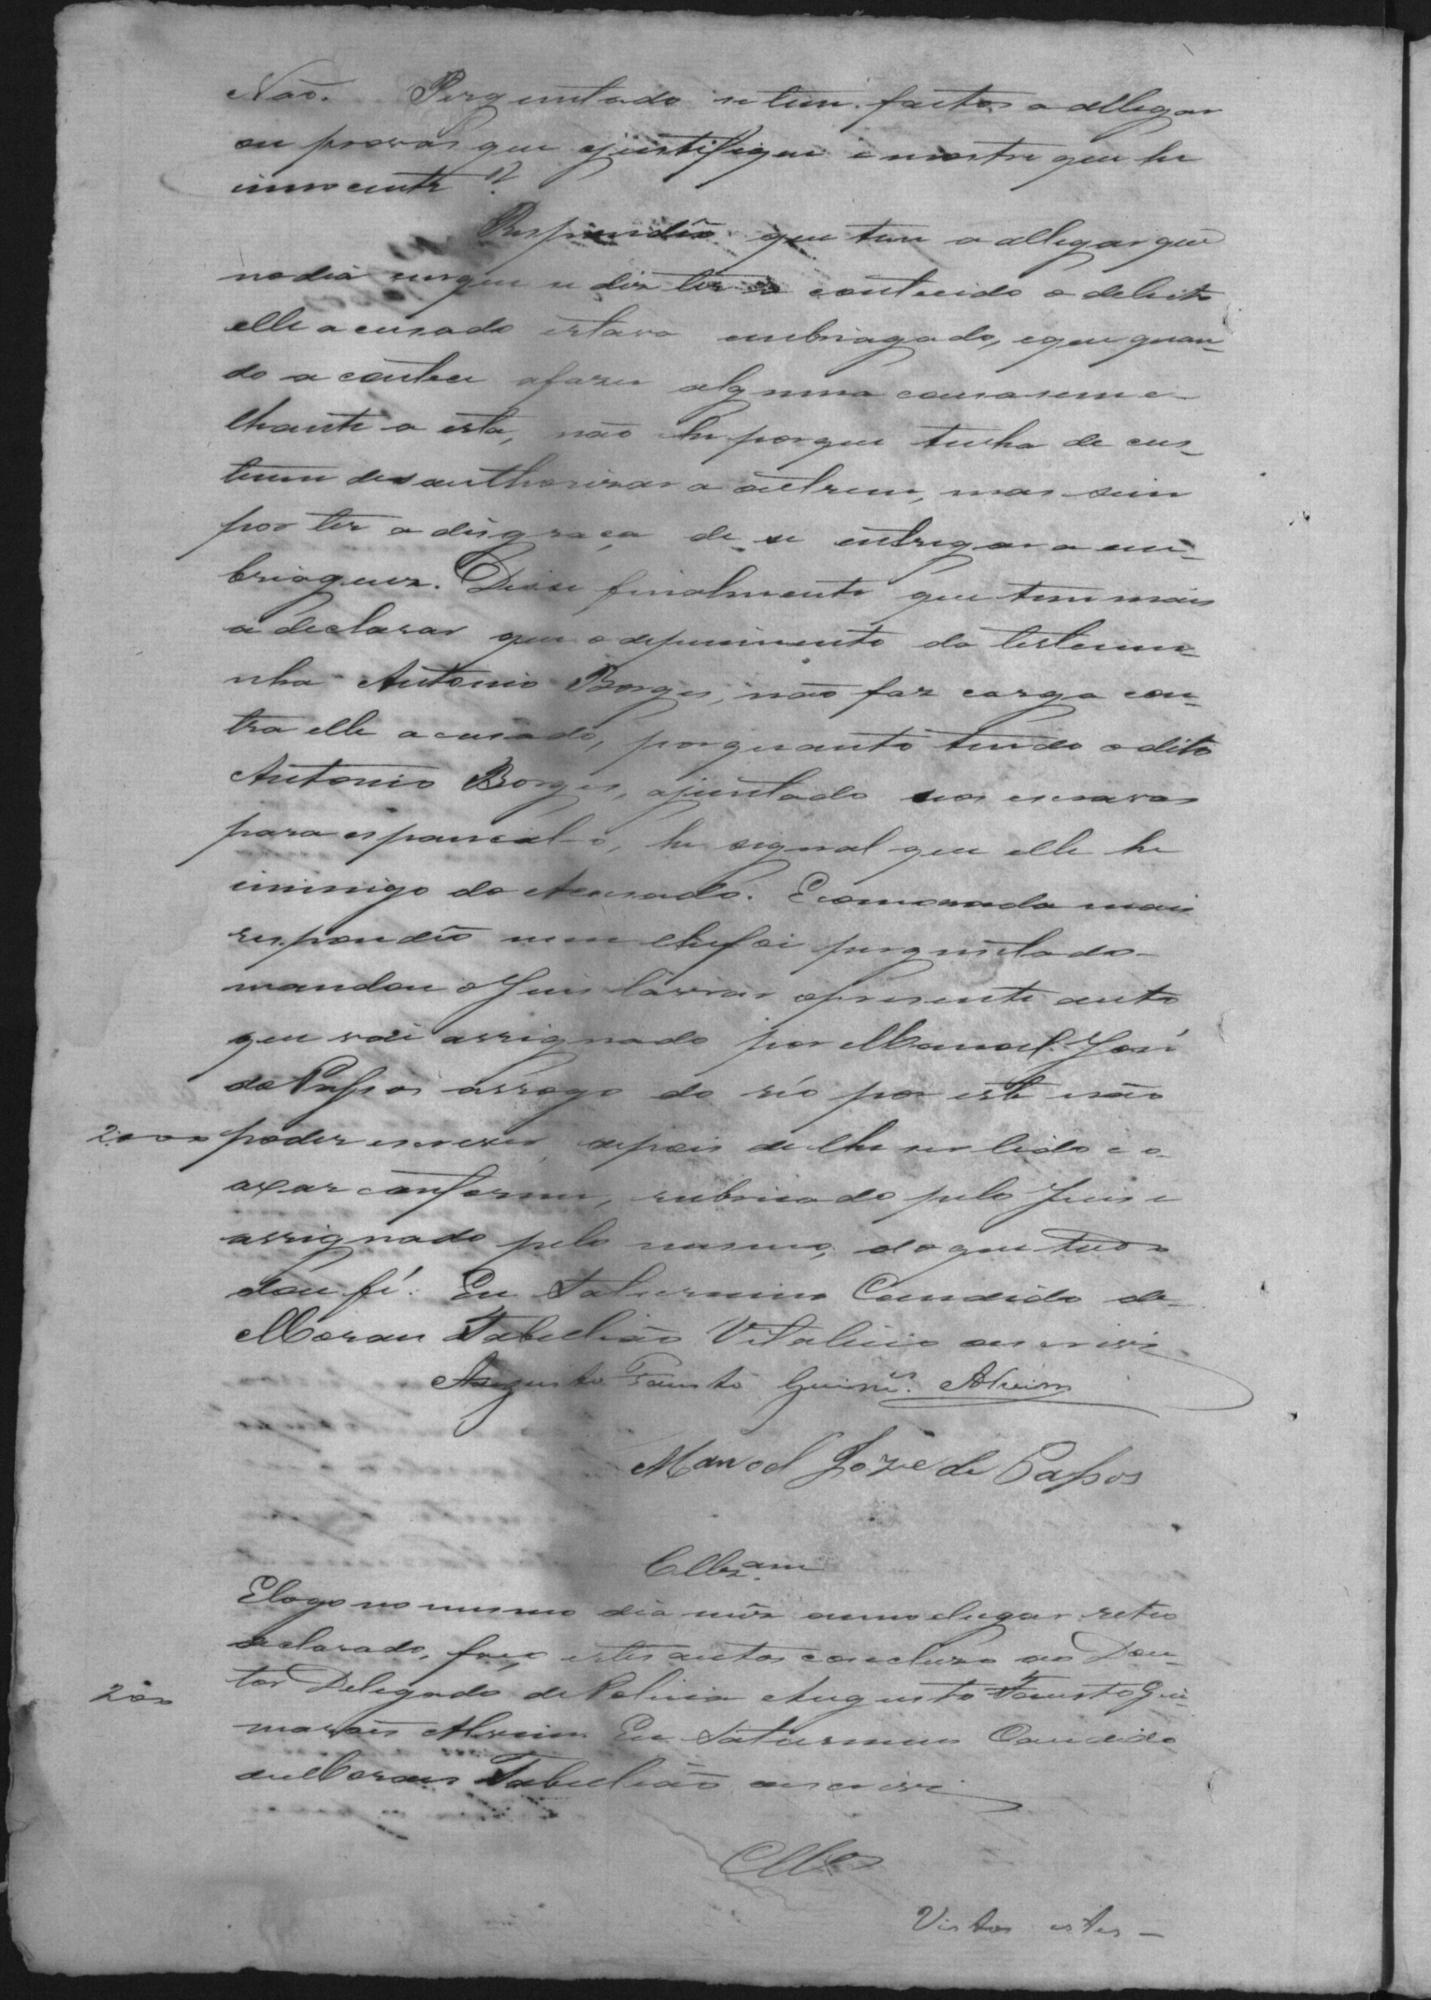 Não. Perguntado se tem factos a allegar
ou provas que o justifique e mostre que he
innocente?
Respondêo que tem a allegar que
no dia em que se diz ter contecido o delicto
elle acusado estava embriagado, e que quan-
do acontece a fazer alguma cousa seme-
lhante a esta, não he porque tenha de cus-
tume desauthorizar a outrem, mas sim
por ter a disgraça de se entregar a em-
briaguez. Disse finalmente que tem mais
a declarar que o depuimento da testemu-
nha Antonio Borges, não faz carga con-
tra elle acusado, porquanto tendo o dito
Antonio Borges, ajuntado escravos
para espancal-o, he signal que elle he
inimigo do Acusado. E como nada mais
respondêo nem lhe foi perguntado
mandou o Juis lavrar o presente auto
que vai assignado por Manoel José
de Passos arrogo do réo por este não
2000 poder escrever, depois de lhe ser lido e o
axar conforme, rubricado pelo Juis e
assignado pelo mesmo, do que tudo
dou fé. Eu Saturnino Candido de
Moraes Tabelião Vitalicio escrivi
Augusto Fausto Guim.es Alvim
Manoel Joze de Passos
Cllz.am
E logo no mesmo dia mez anno e lugar retro
declarado, faço estes autos concluzo ao Dou-
200 tor Delegado de Policia Augusto Fausto Gui-
marães Alvim Eu Saturnino Candido
de Moraes Tabelião escrivi
Cllos
Vistos estes -